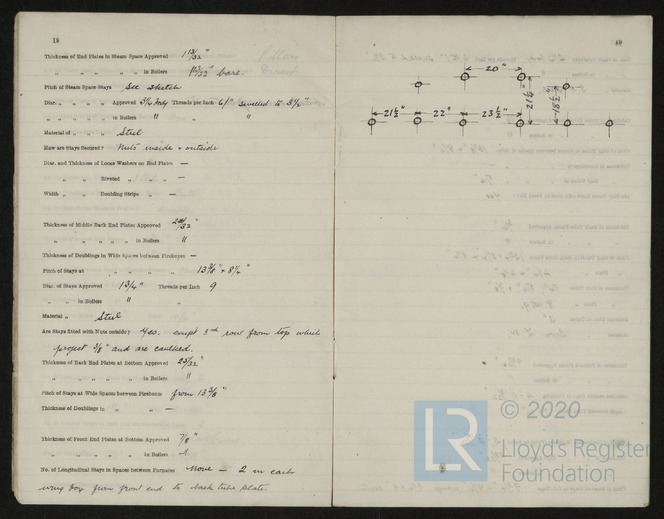 18
Thickness of End Plates in Steam Space Approved 1 13/32"
" " " " " in Boilers 1 13/32" bare
Pitch of Steam Space Stays See sketch
Diar. " " " " Approved 3 1/4 Body Threads per Inch 6 /" swelled to 3 1/2"
" " " " in Boilers " "
Material of " " Steel
How are Stays Secured? Nuts inside & outside
Diar. and Thickness of Loose Washers on End Plates —
" " Riveted " " —
Width " Doubling Strips " —
Thickness of Middle Back End Plates Approved "
" " " " in Boilers "
Thickness of Doublings in Wide Spaces between Fireboxes —
Pitch of Stays at " " " 13 3/8" × 8 1/4"
Diar. of Stays Approved 1 3/4" Threads per Inch 9
" " in Boilers " "
Material " Steel
Are Stays fitted with Nuts outside? Yes. except 3rd row from top which
project 3/8" and are caulked.
Thickness of Back End Plates at Bottom Approved 25/32"
" " " " in Boilers "
Pitch of Stays at Wide Spaces between Fireboxes from 13 3/8"
Thickness of Doublings in " " —
Thickness of Front End Plates at Bottom Approved 7/8"
" " " " in Boilers
No. of Longitudinal Stays in Spaces between Furnaces None — 2 in each
wing Box from front end to back tube plate.
20"
21 1/2" 22" 23 1/2"
© 2020
LR
Lloyd's Register
Foundation